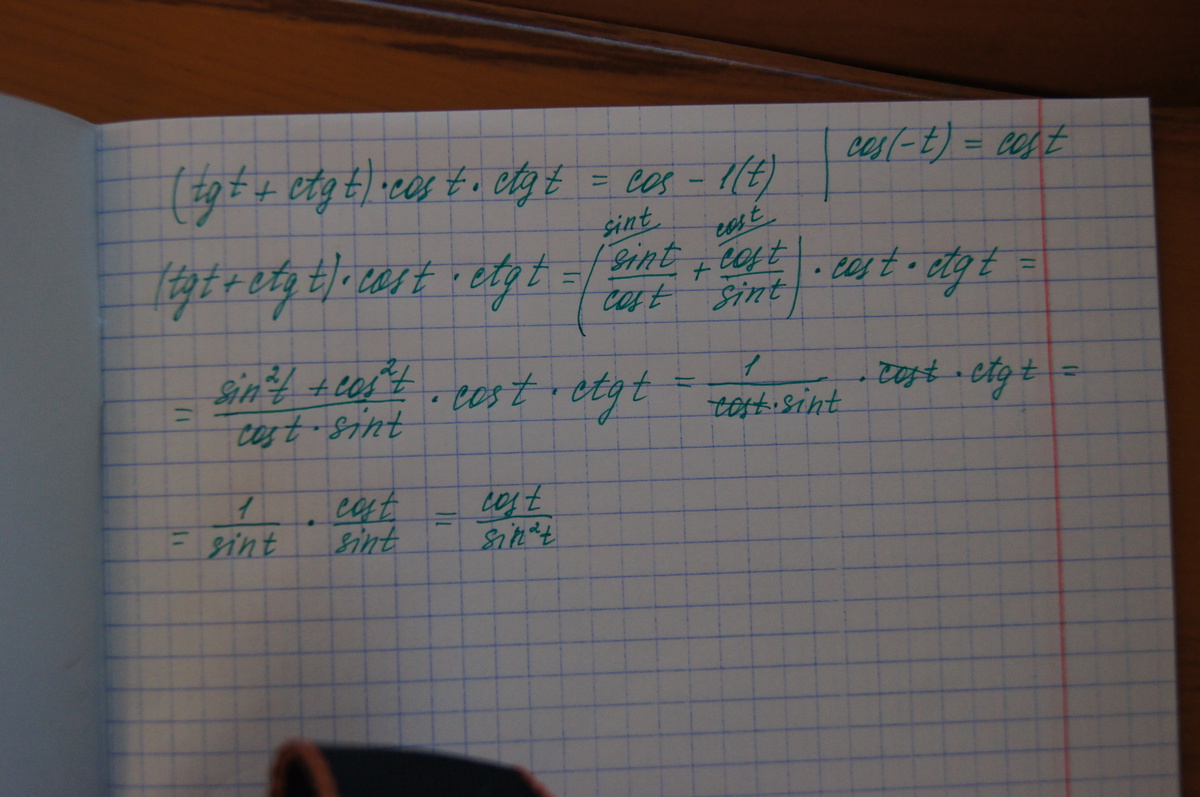 (tg t + ctg t) · cos t · ctg t = cos - 1(t) | cos(-t) = cos t
(tg t + ctg t) · cos t · ctg t = (sin t/cos t^(sin t/ + cos t/sin t^(cos t/) · cos t · ctg t =
= (sin²t + cos²t)/(cos t · sin t) · cos t · ctg t = 1/(cos t · sin t) · cos t · ctg t =
= 1/sin t · cos t/sin t = cos t/sin²t